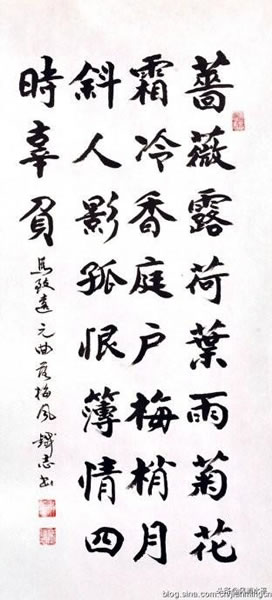 薔薇露荷葉雨菊花
霜冷香庭户梅梢月
斜人影孤恨薄情四
時辜負
馬致遠元曲落梅风 志书
blog.sina.com.cn/jianmingcn